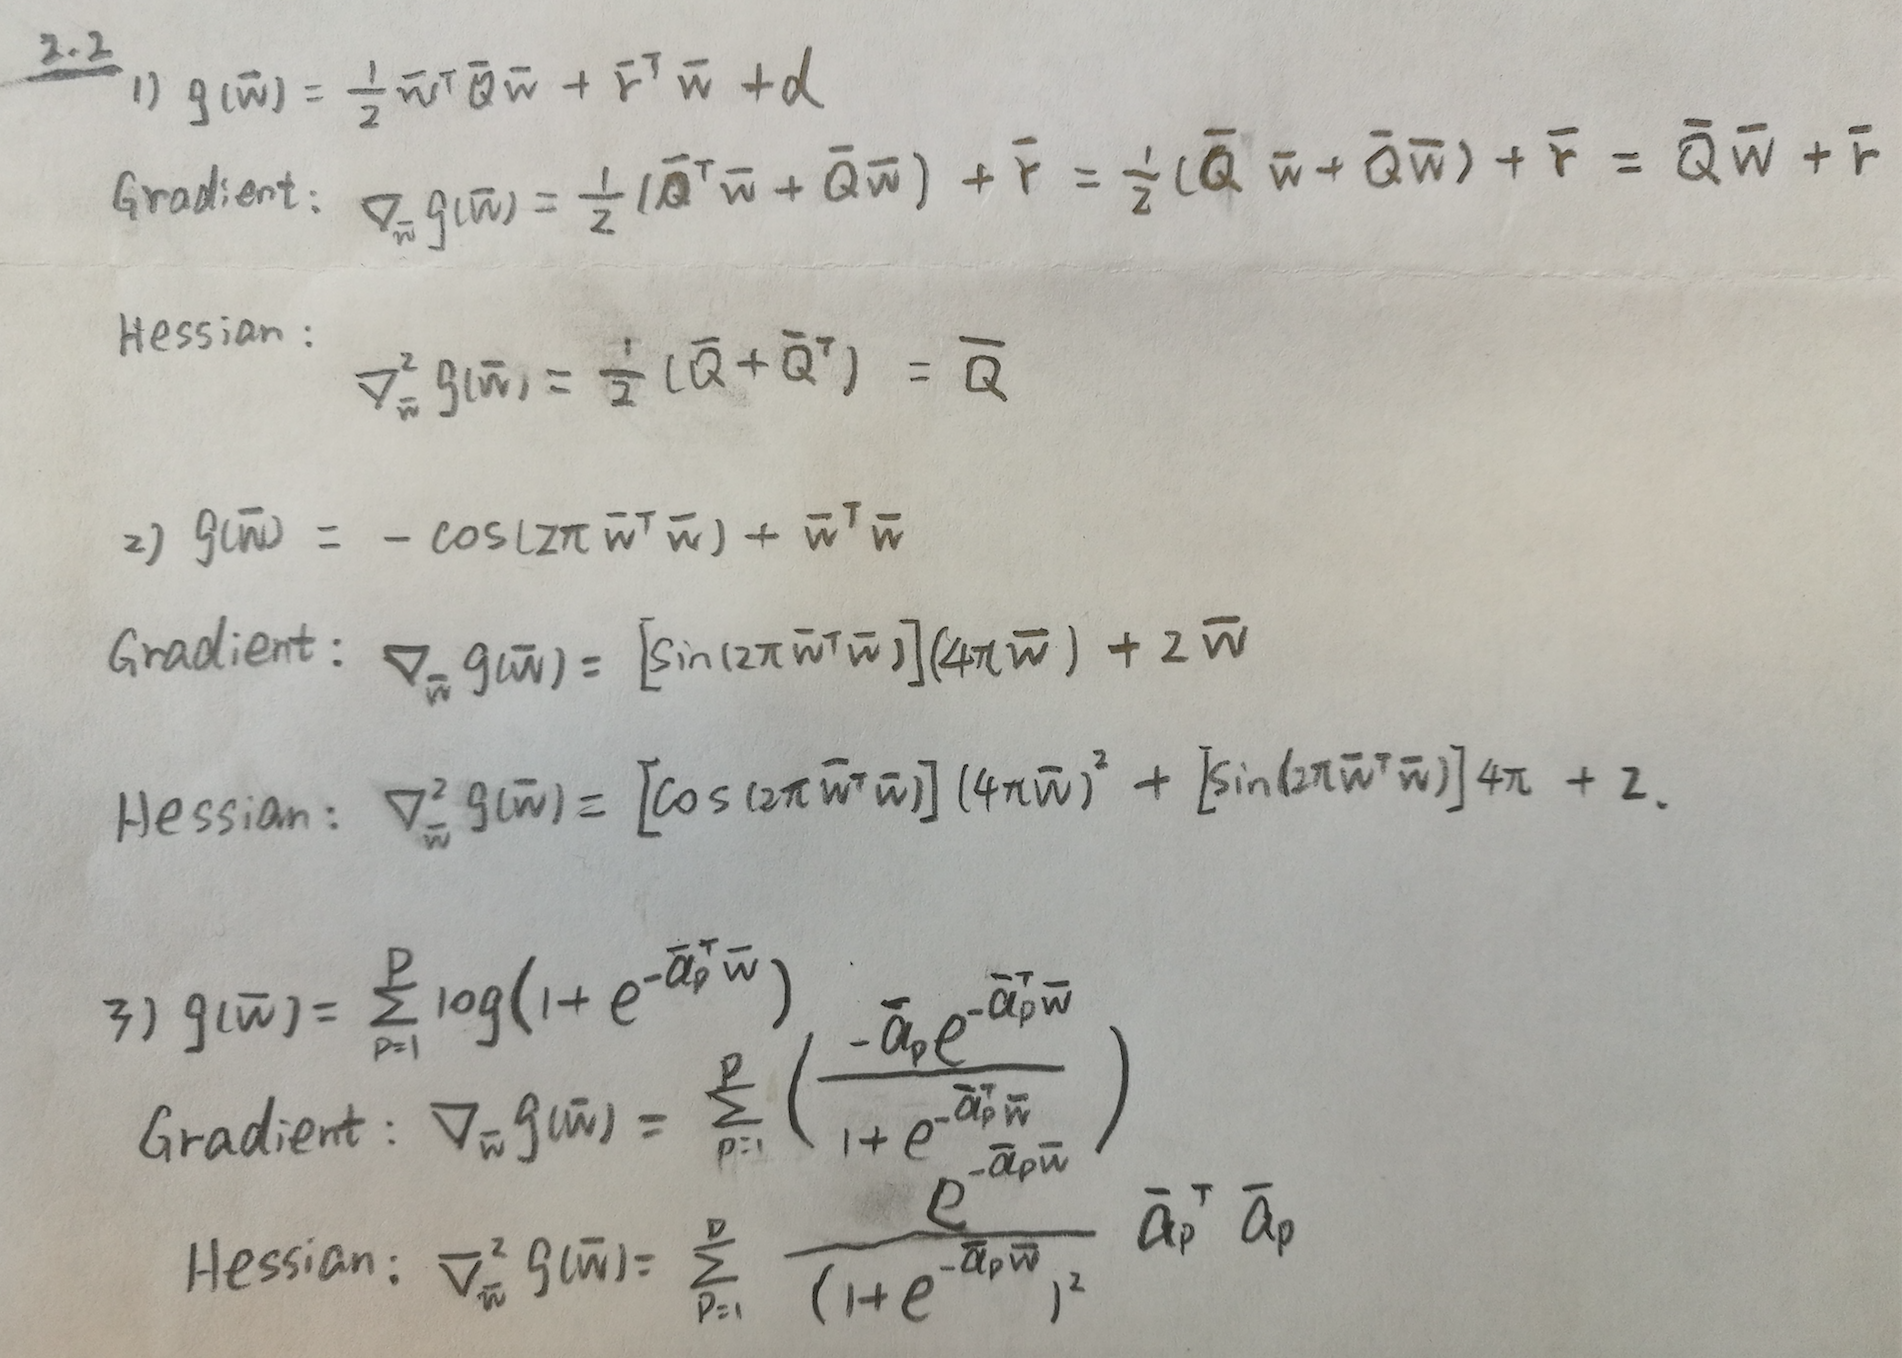 2.2
1) g(w̄) = 1/2 w̄ᵀQ̄w̄ + r̄ᵀw̄ + d
Gradient: ∇_w̄ g(w̄) = 1/2 (Q̄ᵀw̄ + Q̄w̄) + r̄ = 1/2 (Q̄ w̄ + Q̄w̄) + r̄ = Q̄w̄ + r̄
Hessian: ∇²_w̄ g(w̄) = 1/2 (Q̄ + Q̄ᵀ) = Q̄
2) g(w̄) = - cos(2π w̄ᵀw̄) + w̄ᵀw̄
Gradient: ∇_w̄ g(w̄) = [sin(2π w̄ᵀw̄)](4πw̄) + 2w̄
Hessian: ∇²_w̄ g(w̄) = [cos(2π w̄ᵀw̄)](4πw̄)² + [sin(2πw̄ᵀw̄)]4π + 2.
3) g(w̄) = Σ_{p=1}^{P} log(1 + e^{-ā_pᵀw̄})
Gradient: ∇_w̄ g(w̄) = Σ_{p=1}^{P} ( -ā_p e^{-ā_pᵀw̄} / 1 + e^{-ā_pᵀw̄} )
Hessian: ∇²_w̄ g(w̄) = Σ_{p=1}^{P} e^{-ā_pw̄} / (1 + e^{-ā_pw̄})² ā_pᵀ ā_p